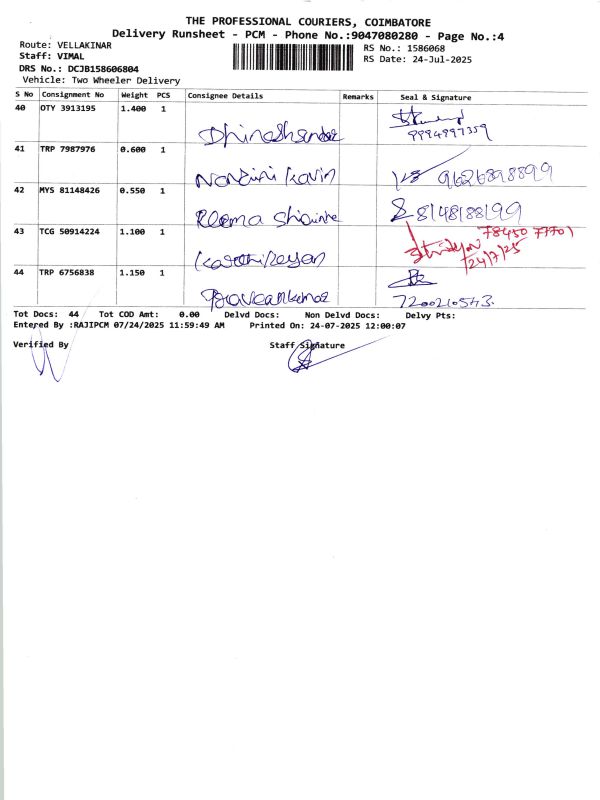 THE PROFESSIONAL COURIERS, COIMBATORE
Delivery Runsheet - PCM - Phone No.:9047080280 - Page No.:4
Route: VELLAKINAR
Staff: VIMAL
DRS No.: DCJB158606804
Vehicle: Two Wheeler Delivery
RS No.: 1586068
RS Date: 24-Jul-2025
S No Consignment No Weight PCS Consignee Details Remarks Seal & Signature
40 OTY 3913195 1.400 1
Dhinashandar
9994997359
41 TRP 7987976 0.600 1
Nandini Kavin 9626898899
42 MYS 81148426 0.550 1
Reema 8148188199
43 TCG 50914224 1.100 1
Karthikeyan
78450 77701
24/7/25
44 TRP 6756838 1.150 1
Praveenkumar
7200210543.
Tot Docs: 44 Tot COD Amt: 0.00 Delvd Docs: Non Delvd Docs: Delvy Pts:
Entered By :RAJIPCM 07/24/2025 11:59:49 AM Printed On: 24-07-2025 12:00:07
Verified By Staff Signature